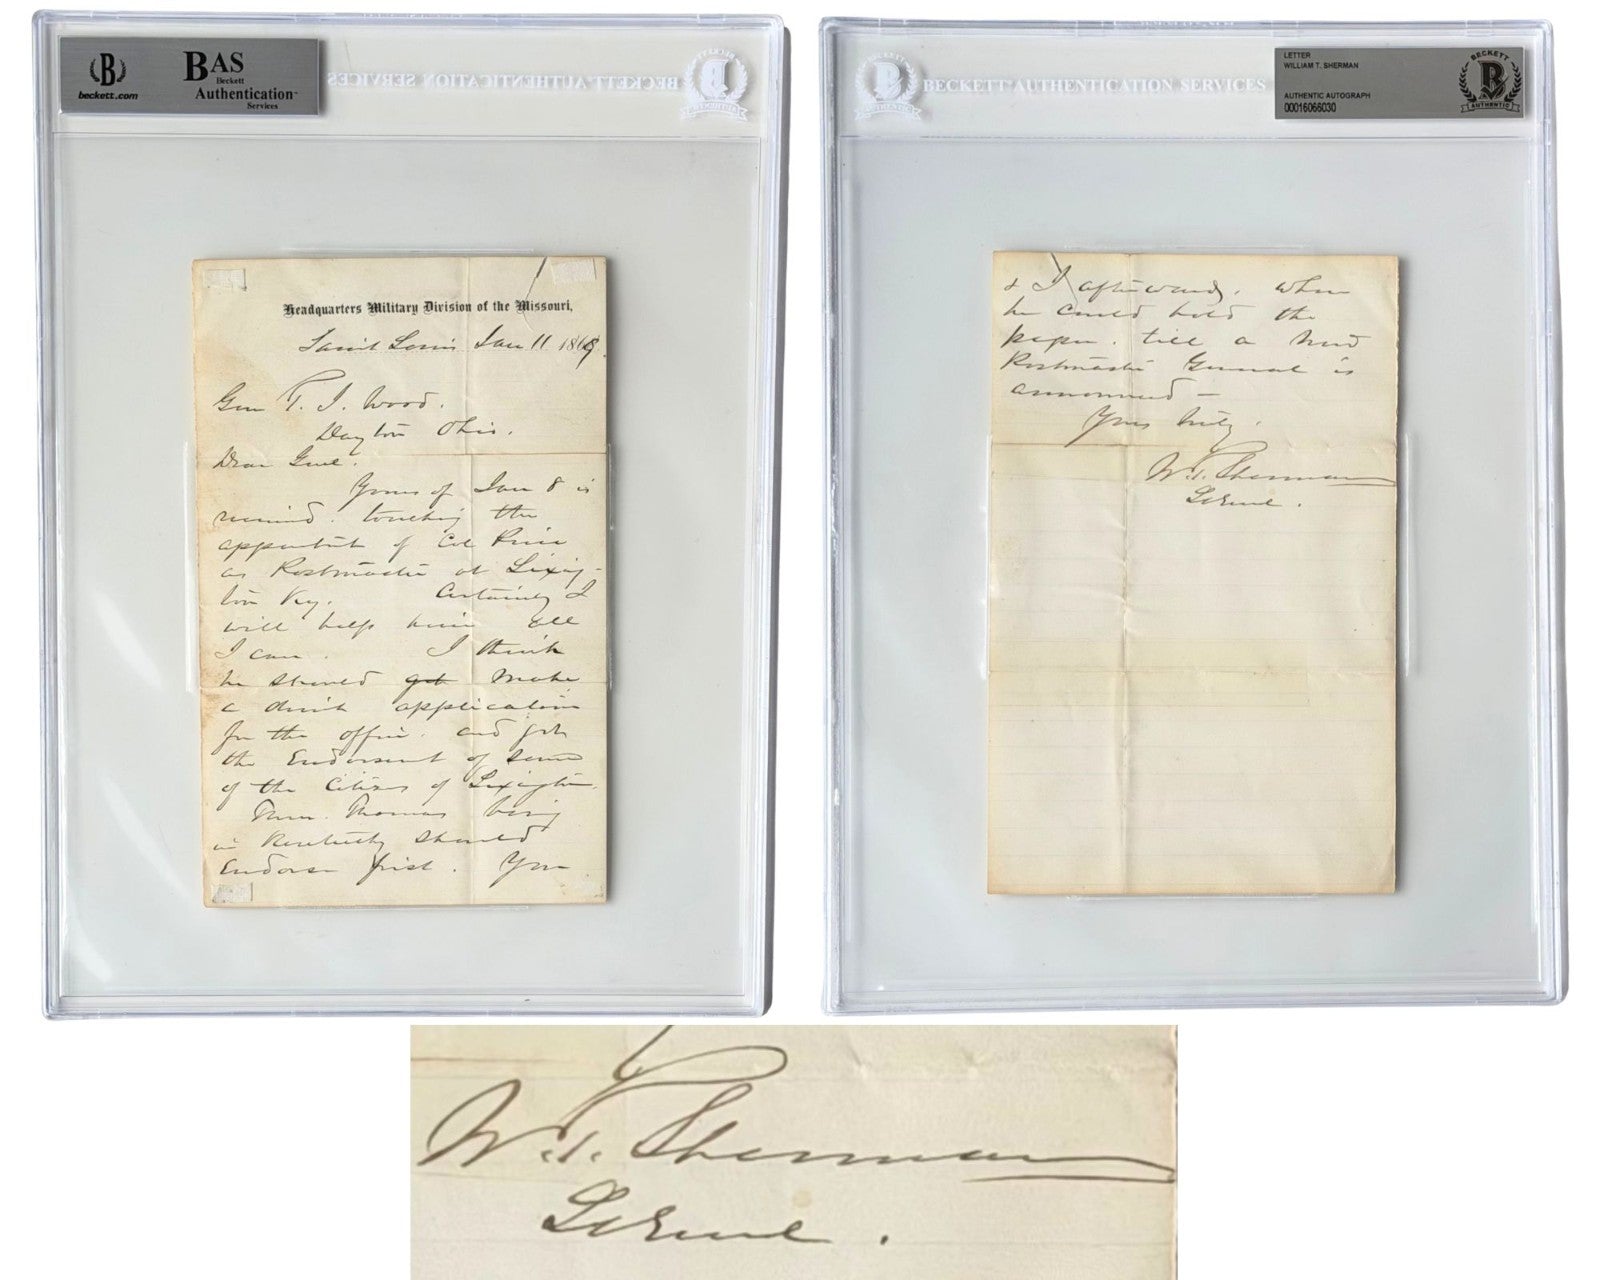 B
beckett.com
BAS
Beckett
Authentication™
Services
BECKETT AUTHENTICATION SERVICES
B
Headquarters Military Division of the Missouri,
Saint Louis Jan 11 1869.
Gen T. J. Wood.
Dayton Ohio.
Dear Genl.
Yours of Jan 8 is
received. touching the
appointmt of Col
as Postmaster at Lexing-
ton Ky. Certainly I
will help him all
I can. I think
he should get make
a direct application
for the office. and get
the Endorsemt of some
of the Citizens of Lexington.
Thomas being
in Kentucky should
Endorse first. You
B
BECKETT AUTHENTICATION SERVICES
LETTER
WILLIAM T. SHERMAN
AUTHENTIC AUTOGRAPH
00016066030
BECKETT
B
AUTHENTIC
& I afterwards. when
he could hold the
paper. till a new
Postmaster General is
announced —
Yours truly.
W. T. Sherman
Lt Genl.
W. T. Sherman
Lt Genl.